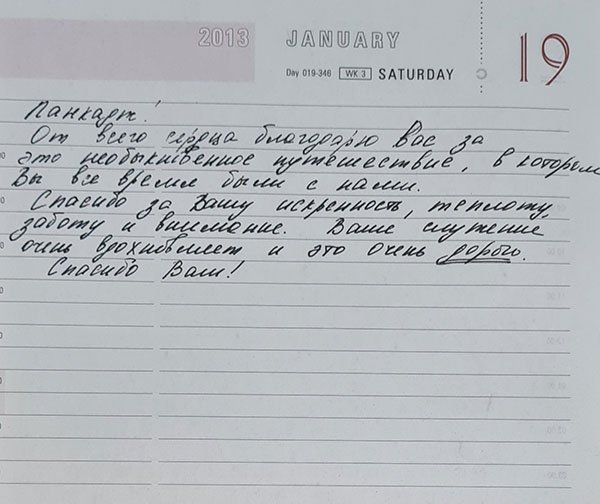 2013 JANUARY 19
Day 019-346 WK 3 SATURDAY
Панкадж!
От всего сердца благодарю Вас за
это необыкновенное путешествие, в котором
Вы все время были с нами.
Спасибо за Вашу искренность, теплоту,
заботу и внимание. Ваше служение
очень вдохновляет и это очень дорого.
Спасибо Вам!